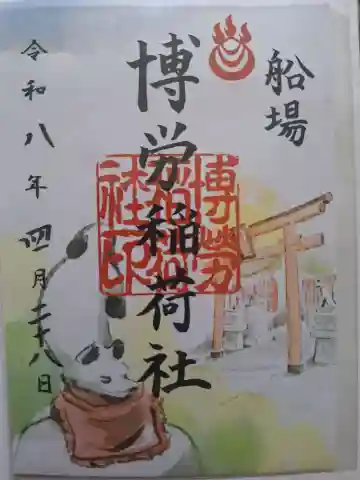 船場
博労稲荷社
令和八年四月二十八日
博勞
稲荷
社印